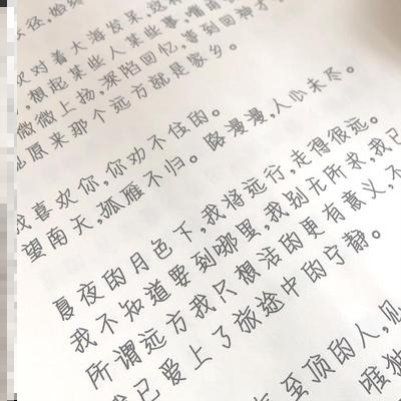 对着大海发呆,这
,想起某些人某些事,嘴角
微微上扬,深陷回忆,等到回神才
原来那个远方就是家乡。
我喜欢你,你劝不住的。
望南天,孤雁不归。路漫漫,人心未尽。
夏夜的月色下,我将远行,走得很远。
我不知道要到哪里,我别无所求,我已
所谓远方我只想活的更有意义,不
我已爱上了旅途中的宁静。
至顶的人,见
唯独